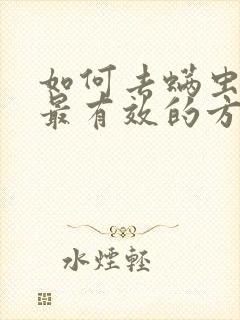 如何去螨虫
最有效的方
水煙輕